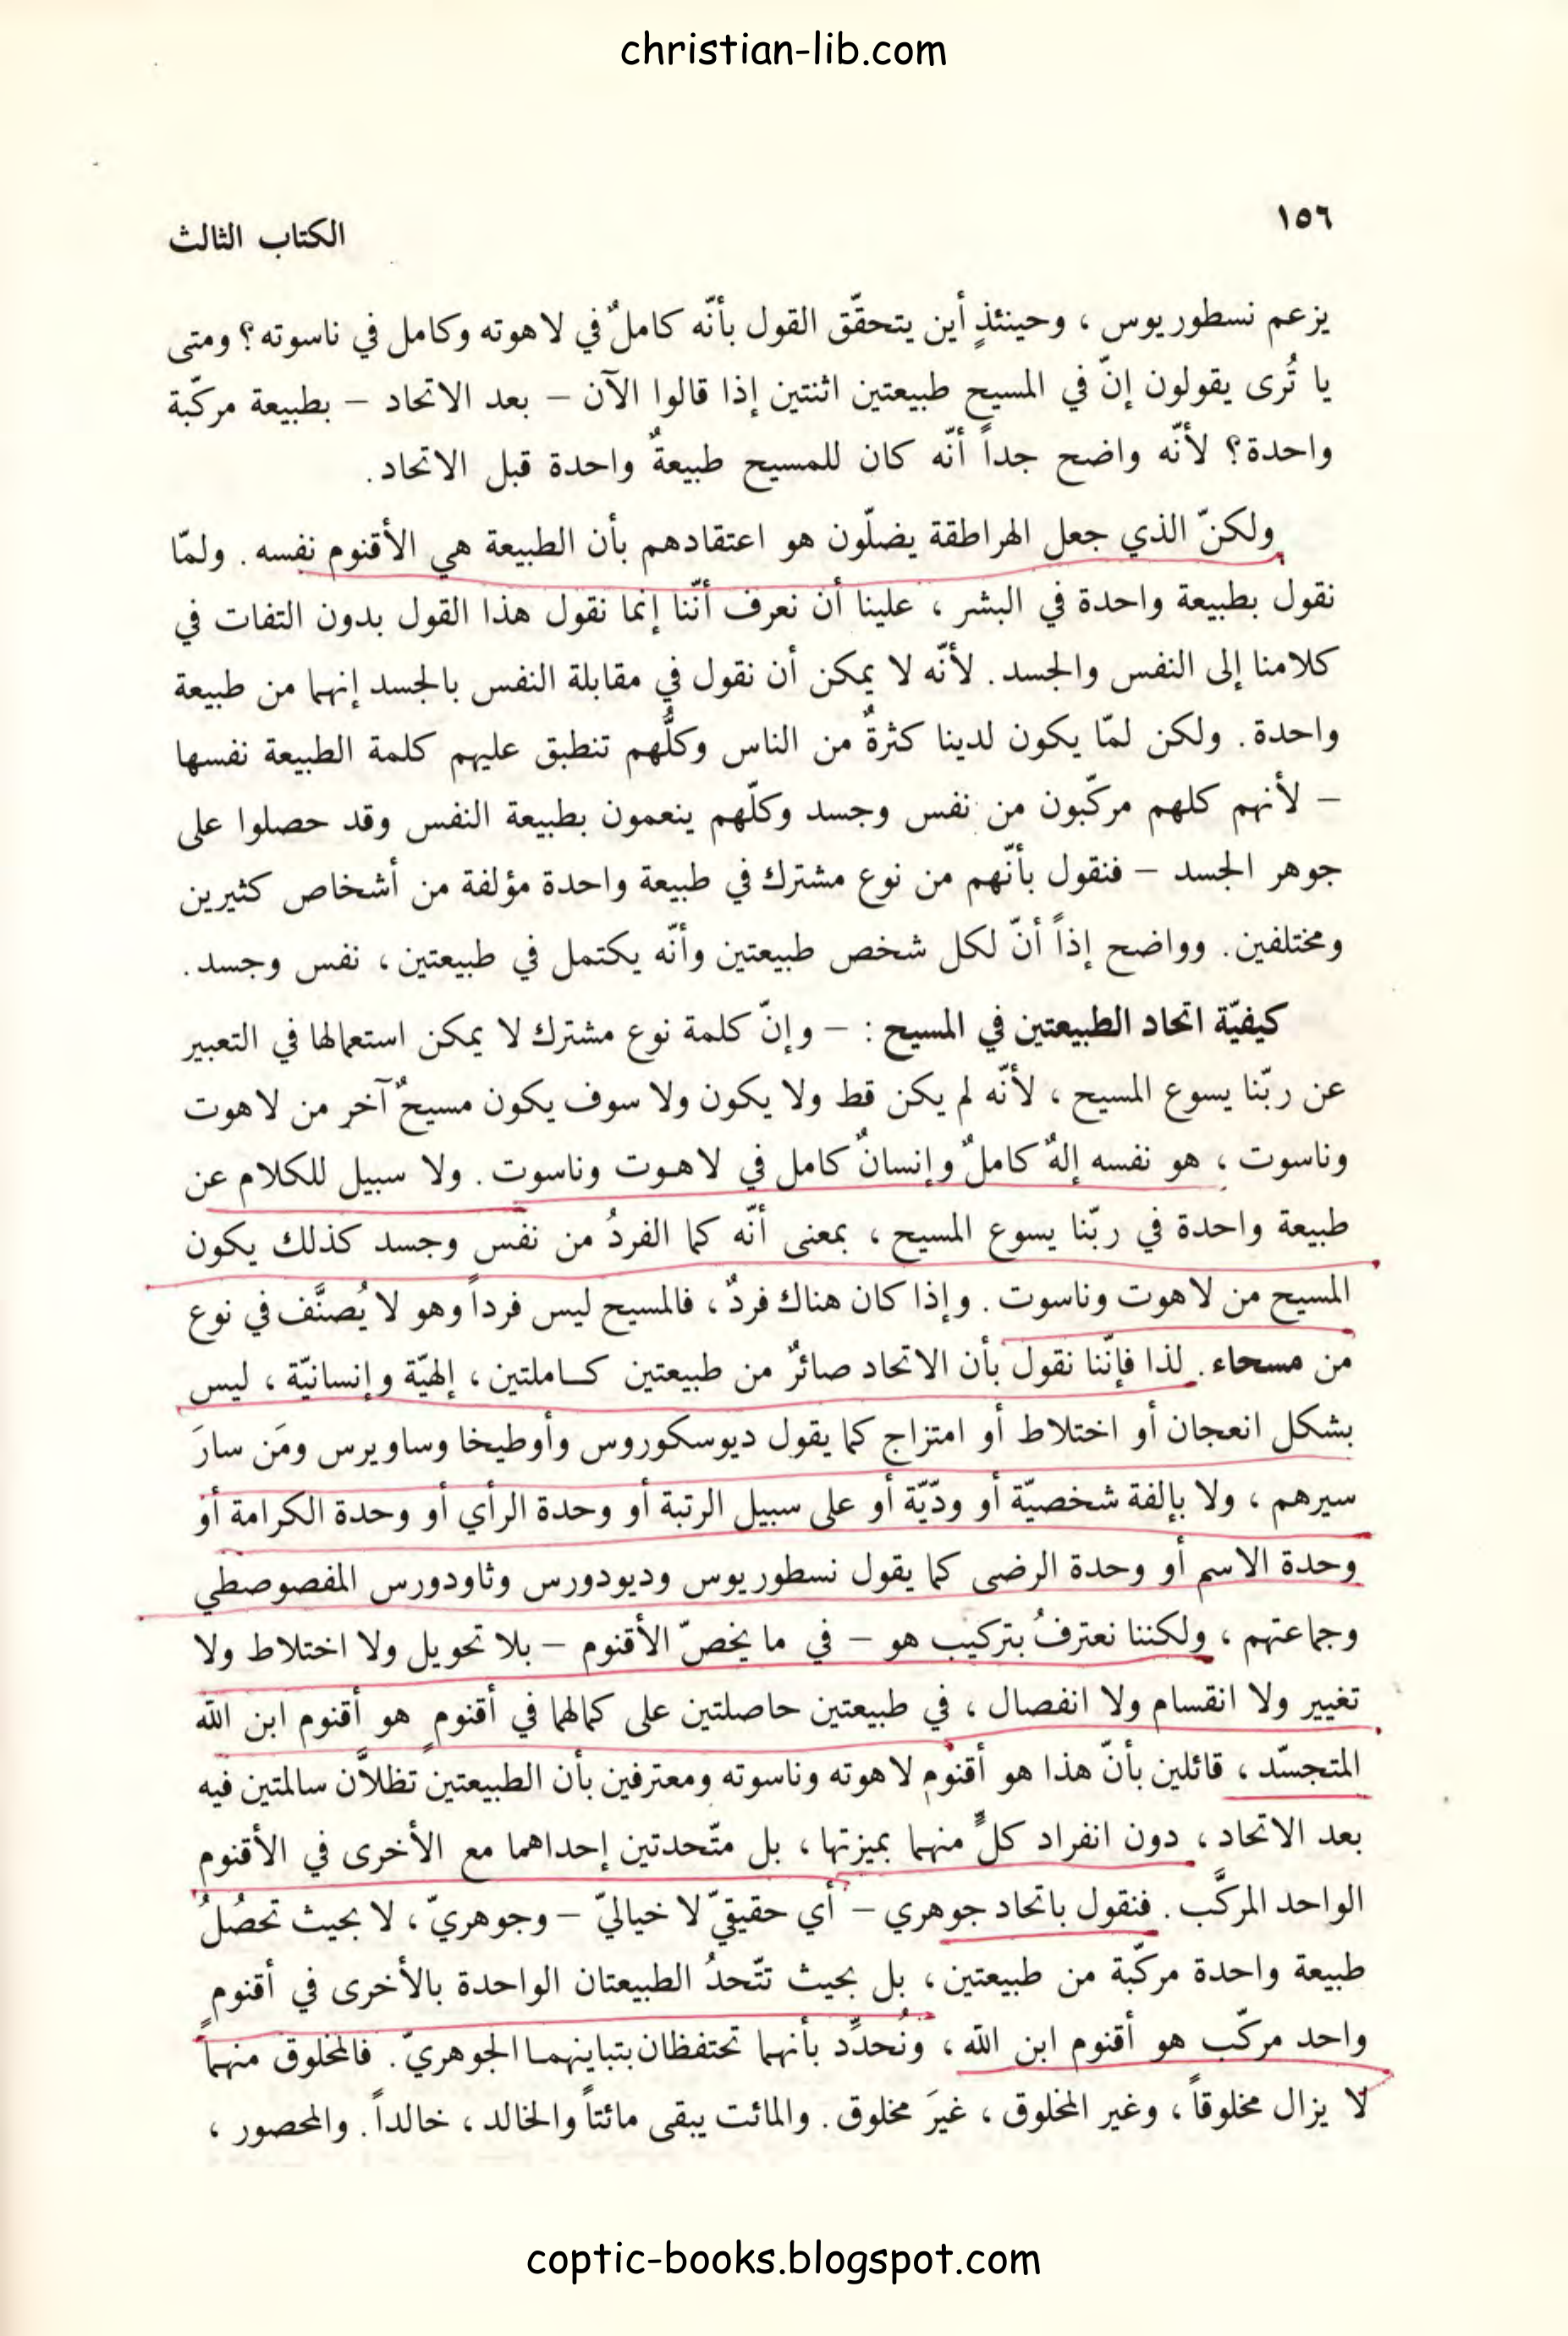 christian-lib.com
١٥٦
الكتاب الثالث
يزعم نسطوريوس ، وحينئذٍ أين يتحقّق القول بأنّه كاملٌ في لاهوته وكامل في ناسوته؟ ومتى
يا تُرى يقولون إنّ في المسيح طبيعتين اثنتين إذا قالوا الآن – بعد الاتحاد – بطبيعة مركّبة
واحدة؟ لأنّه واضح جداً أنّه كان للمسيح طبيعةٌ واحدة قبل الاتحاد.
ولكنّ الذي جعل الهراطقة يضلّون هو اعتقادهم بأن الطبيعة هي الأقنوم نفسه. ولمّا
نقول بطبيعة واحدة في البشر ، علينا أن نعرف أنّنا إنما نقول هذا القول بدون التفات في
كلامنا إلى النفس والجسد. لأنّه لا يمكن أن نقول في مقابلة النفس بالجسد إنهما من طبيعة
واحدة. ولكن لمّا يكون لدينا كثرةٌ من الناس وكلُّهم تنطبق عليهم كلمة الطبيعة نفسها
– لأنهم كلهم مركّبون من نفس وجسد وكلّهم ينعمون بطبيعة النفس وقد حصلوا على
جوهر الجسد – فنقول بأنّهم من نوع مشترك في طبيعة واحدة مؤلفة من أشخاص كثيرين
ومختلفين. وواضح إذاً أنّ لكل شخص طبيعتين وأنّه يكتمل في طبيعتين ، نفس وجسد.
كيفيّة اتحاد الطبيعتين في المسيح : – وإنّ كلمة نوع مشترك لا يمكن استعمالها في التعبير
عن ربّنا يسوع المسيح ، لأنّه لم يكن قط ولا يكون ولا سوف يكون مسيحٌ آخر من لاهوت
وناسوت ، هو نفسه إلهٌ كاملٌ وإنسانٌ كامل في لاهوت وناسوت. ولا سبيل للكلام عن
طبيعة واحدة في ربّنا يسوع المسيح ، بمعنى أنّه كما الفردُ من نفس وجسد كذلك يكون
المسيح من لاهوت وناسوت. وإذا كان هناك فردٌ ، فالمسيح ليس فرداً وهو لا يُصنَّف في نوع
من مسحاء. لذا فإنّنا نقول بأن الاتحاد صائرٌ من طبيعتين كاملتين ، إلهيّة وإنسانيّة ، ليس
بشكل انعجان أو اختلاط أو امتزاج كما يقول ديوسكوروس وأوطيخا وساويرس ومَن سارَ
سيرهم ، ولا بإلفة شخصيّة أو ودّيّة أو على سبيل الرتبة أو وحدة الرأي أو وحدة الكرامة أو
وحدة الاسم أو وحدة الرضى كما يقول نسطوريوس وديودورس وثاودورس المفصوصطي
وجماعتهم ، ولكننا نعترفُ بتركيب هو – في ما يخصّ الأقنوم – بلا تحويل ولا اختلاط ولا
تغيير ولا انقسام ولا انفصال ، في طبيعتين حاصلتين على كمالهما في أقنومٍ هو أقنوم ابن الله
المتجسّد ، قائلين بأنّ هذا هو أقنوم لاهوته وناسوته ومعترفين بأن الطبيعتين تظلاّن سالمتين فيه
بعد الاتحاد ، دون انفراد كلٍّ منهما بميزتها ، بل متّحدتين إحداهما مع الأخرى في الأقنوم
الواحد المركَّب. فنقول باتحاد جوهري – أي حقيقيّ لا خياليّ – وجوهريّ ، لا بحيث تحصُلُ
طبيعة واحدة مركّبة من طبيعتين ، بل بحيث تتّحدُ الطبيعتان الواحدة بالأخرى في أقنومٍ
واحد مركّب هو أقنوم ابن الله ، ونُحدِّد بأنهما تحتفظان بتباينهما الجوهريّ. فالمخلوق منهما
لا يزال مخلوقاً ، وغير المخلوق ، غيرَ مخلوق. والمائت يبقى مائتاً والخالد ، خالداً. والمحصور ،
coptic-books.blogspot.com